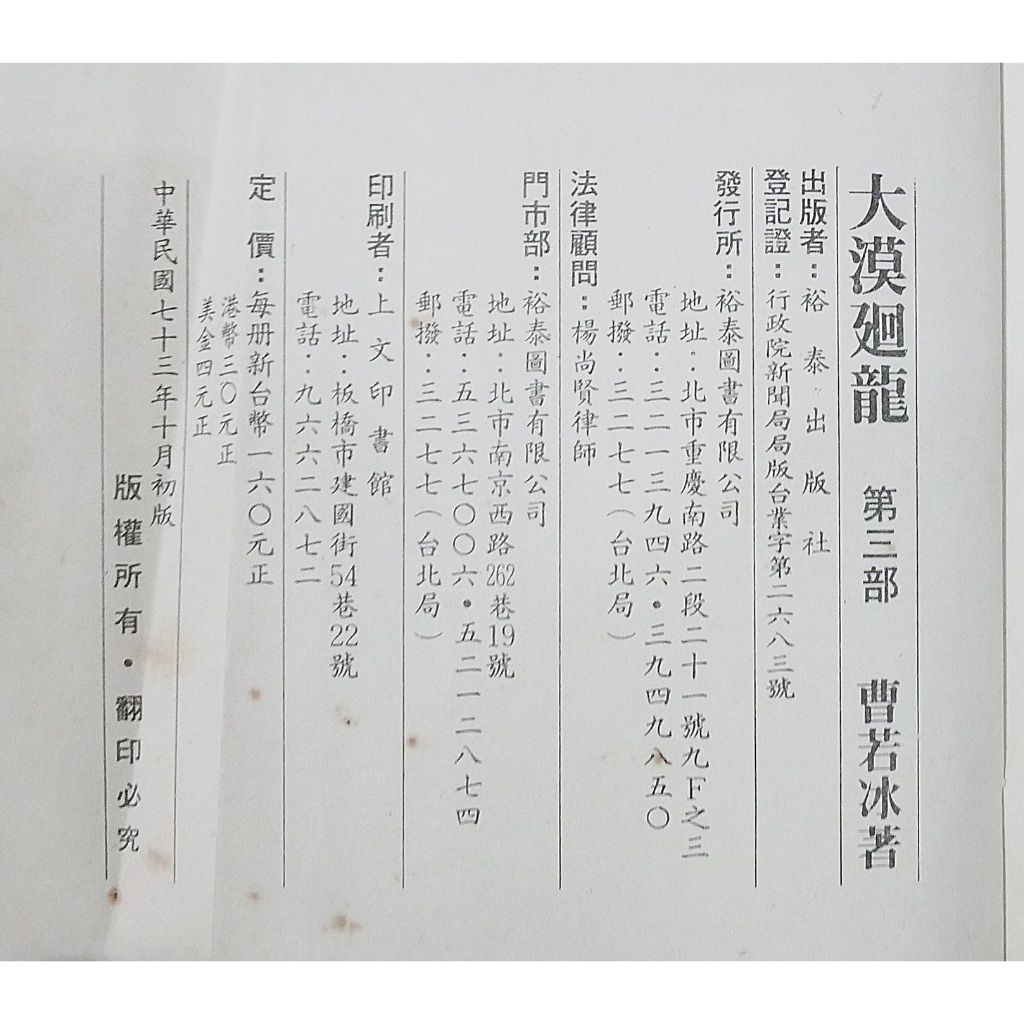 大漠廻龍 第三部 曹若冰著
出版者：裕泰出版社
登記證：行政院新聞局局版台業字第二六八三號
發行所：裕泰圖書有限公司
地址：北市重慶南路二段二十一號九F之三
電話：三二一三九四六・三九四九八五〇
郵撥：三二七七（台北局）
法律顧問：楊尚賢律師
門市部：裕泰圖書有限公司
地址：北市南京西路262巷19號
電話：五三六七〇〇六・五二一二八七四
郵撥：三二七七（台北局）
印刷者：上文印書館
地址：板橋市建國街54巷22號
電話：九六六二八七二
定價：每册新台幣一六〇元正
港幣三〇元正
美金四元正
中華民國七十三年十月初版
版權所有・翻印必究